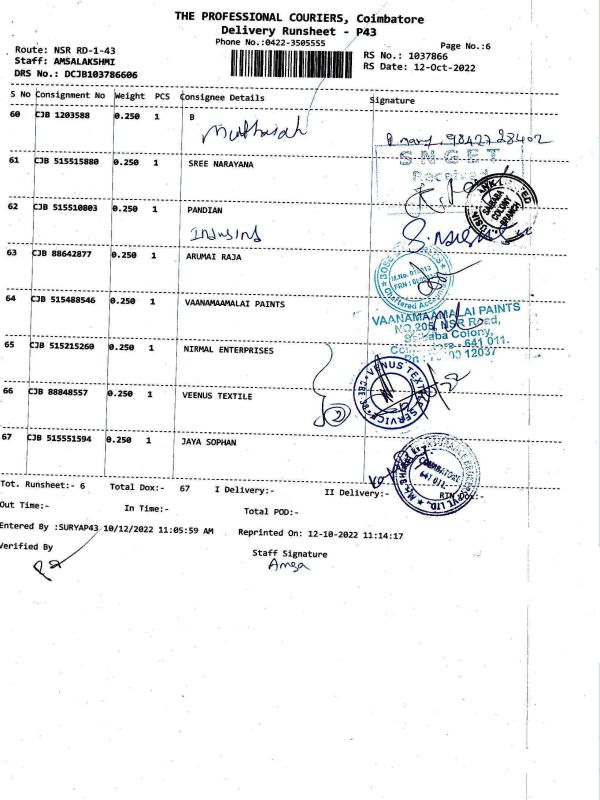 THE PROFESSIONAL COURIERS, Coimbatore
Delivery Runsheet - P43
Phone No.:0422-3505555
Page No.:6
Route: NSR RD-1-43
Staff: AMSALAKSHMI
DRS No.: DCJB103786606
RS No.: 1037866
RS Date: 12-Oct-2022
S No Consignment No Weight PCS Consignee Details Signature
60 CJB 1203588 0.250 1 B
Muthaiah
9842728402
SNGET
Received
61 CJB 515515880 0.250 1 SREE NARAYANA
SAIBABA
COLONY
BRANCH
62 CJB 515510803 0.250 1 PANDIAN
63 CJB 88642877 0.250 1 ARUMAI RAJA
Chartered
64 CJB 515488546 0.250 1 VAANAMAAMALAI PAINTS
VAANAMAAMALAI PAINTS
NO.205, NSR Road,
Saibaba Colony,
641 011.
12037
65 CJB 515215260 0.250 1 NIRMAL ENTERPRISES
VENUS TEXTILE SERVICE
66 CJB 88848557 0.250 1 VEENUS TEXTILE
2
67 CJB 515551594 0.250 1 JAYA SOPHAN
COIMBATORE
641 011.
Tot. Runsheet:- 6 Total Dox:- 67 I Delivery:- II Delivery:- RTN Dox:-
Out Time:- In Time:- Total POD:-
Entered By :SURYAP43 10/12/2022 11:05:59 AM Reprinted On: 12-10-2022 11:14:17
Verified By
Staff Signature
Amsa